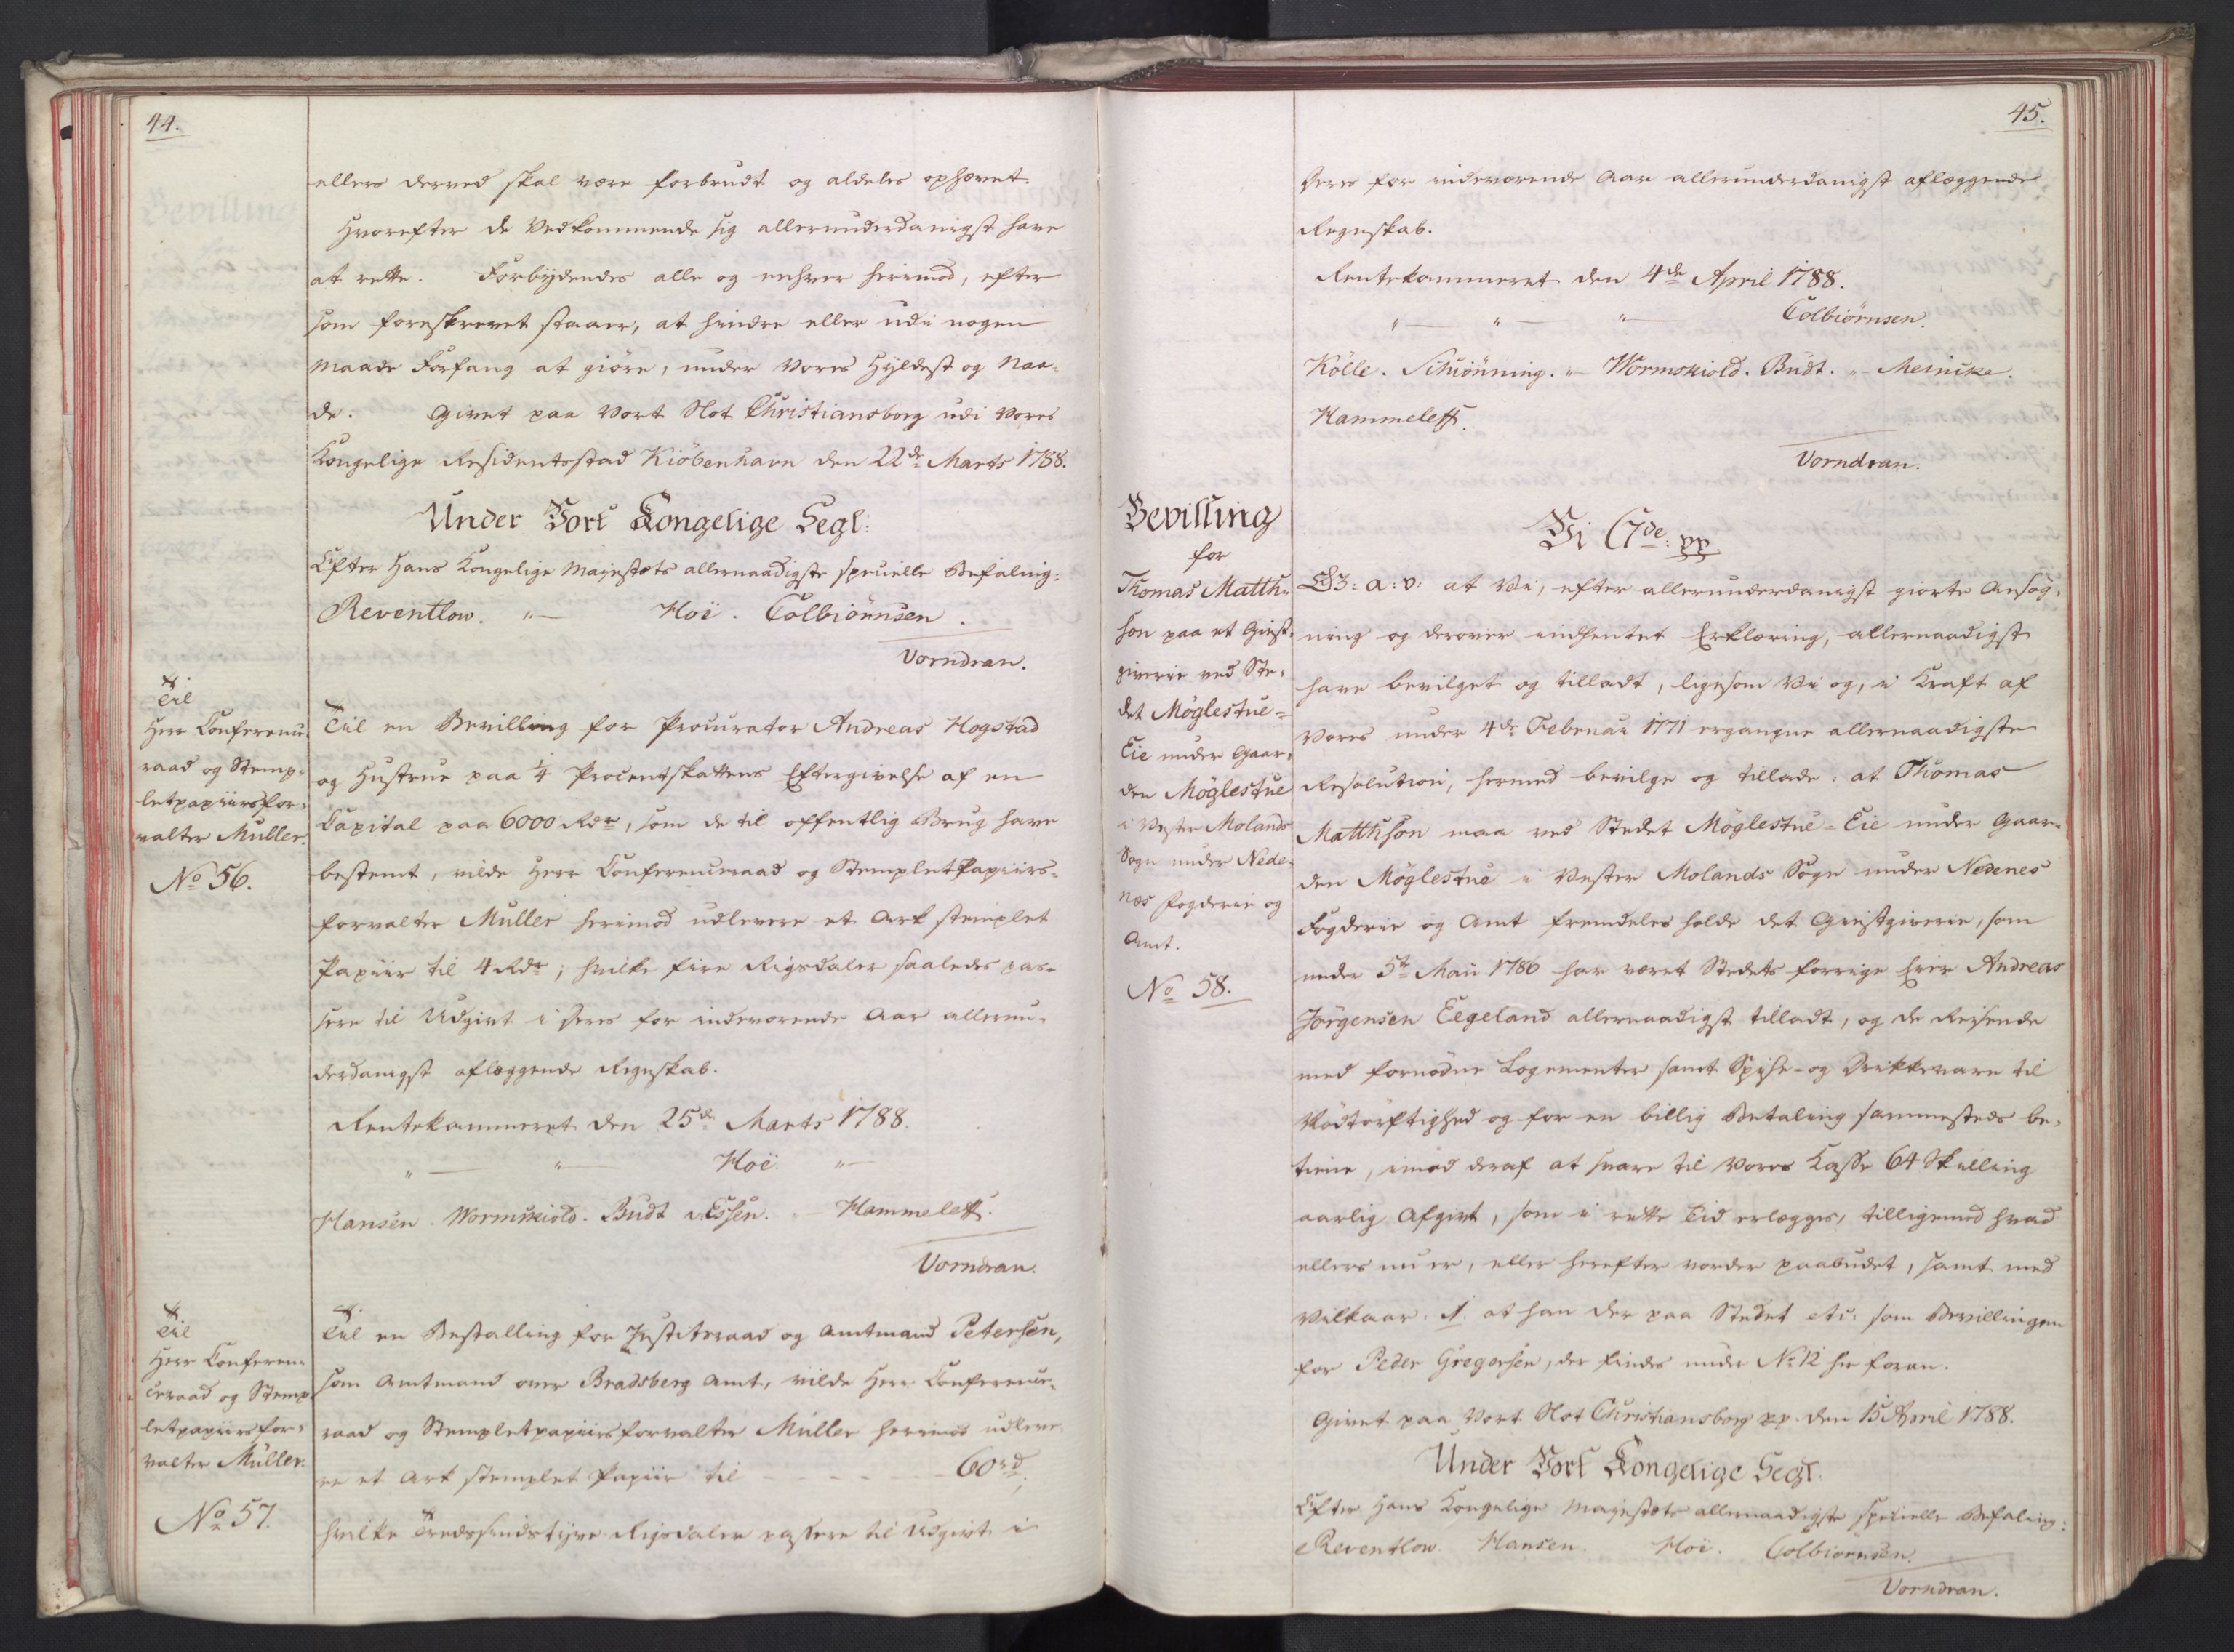 44.
ellers derved skal være forbrudt og aldeles ophævet.
Hvorefter de Vedkommende sig allerunderdanigst have
at rette. Forbydendes alle og enhver herimod, efter
som foreskrevet staaer, at hindre eller udi nogen
Maade Forfang at giöre, under Vores Hyldest og Naa-
de. Givet paa Vort Slot Christiansborg udi Vores
Kongelige Residentsstad Kiöbenhavn den 22de Marts 1788.
Under Vort Kongelige Segl:
Efter Hans Kongelige Majestæts allernaadigste specielle Befaling:
Reventlow. "— Hoë. Colbiörnsen.
Vorndran.
Til
Herr Conferenu-
raad og Stemp-
letpapiirsfor-
valter Müller.
No 56.
Til en Bevilling for Procurator Andreas Hogstad
og Hustrue paa 1/4 Procentskattens Eftergivelse af en
Capital paa 6000 Rdr, som de til offentlig Brug have
bestemt, vilde Herr Conferenceraad og StempletPapiirs-
forvalter Müller herimod udlevere et Ark stemplet
Papiir til 4 Rdr; hvilke fire Rigsdaler saaledes pas-
sere til Udgivt i Deres for indeværende Aar allerun-
derdanigst aflæggende Regnskab.
Rentekammeret den 25de Marts 1788.
"— "— Hoë. "—
Hansen. Wormskiold. Budt. v. Essen. "— Hammeleff.
Vorndran.
Til
Herr Conferen-
ceraad og Stemp-
letpapiirsfor-
valter Müller.
No 57.
Til en Bestalling for Justitsraad og Amtmand Petersen,
som Amtmand over Bradsberg Amt, vilde Herr Conference-
raad og Stempletpapiirsforvalter Müller herimod udleve-
re et Ark stemplet Papiir til - - - 60rd,
hvilke Tredssindstyve Rigsdaler passere til Udgivt i
45.
Deres for indeværende Aar allerunderdanigst aflæggende
Regnskab.
Rentekammeret den 4de April 1788.
"— "— "— Colbiörnsen.
Kölle. Schiönning. "— Wormskiold. Budt. "— Meinicke.
Hammeleff.
Vorndran.
Bevilling
for
Thomas Matthi-
son paa et Giest-
giverie ved Ste-
det Möglestue-
Eie under Gaar-
den Möglestue
i Vester Molands
Sogn under Nede-
næs Fogderie og
Amt.
No 58.
Vi C7de: pp.
G: a: v: at Vi, efter allerunderdanigst giorte Ansög-
ning og derover indhentet Erklæring, allernaadigst
have bevilget og tilladt, ligesom Vi og, i Kraft af
Vores under 4de Februar 1771 ergangne allernaadigste
Resolution, hermed bevilge og tillade: at Thomas
Matthison maa ved Stedet Möglestue-Eie under Gaar-
den Möglestue i Vester Molands Sogn under Nedenes
Fogderie og Amt fremdeles holde det Giestgiverie, som
under 5te Maii 1786 har været Stedets forrige Eier Andreas
Jörgensen Eegeland allernaadigst tilladt, og de Reisende
med fornödne Logementer samt Spise- og Drikkevare til
Nödtörftighed og for en billig Betaling sammesteds be-
tiene, imod deraf at svare til Vores Kasse 64 Skilling
aarlig Afgivt, som i rette Tid erlægges, tilligemed hvad
ellers nu er, eller herefter vorder paabudet, samt med
Vilkaar. 1. at han der paa Stedet etc: som Bevillingen
for Peder Gregersen, der findes under No 12 her foran.
Givet paa Vort Slot Christiansborg pp. den 15 April 1788.
Under Vort Kongelige Segl.
Efter Hans Kongelige Majestæts allernaadigste specielle Befaling:
Reventlow. Hansen. Hoë. Colbiörnsen.
Vorndran.